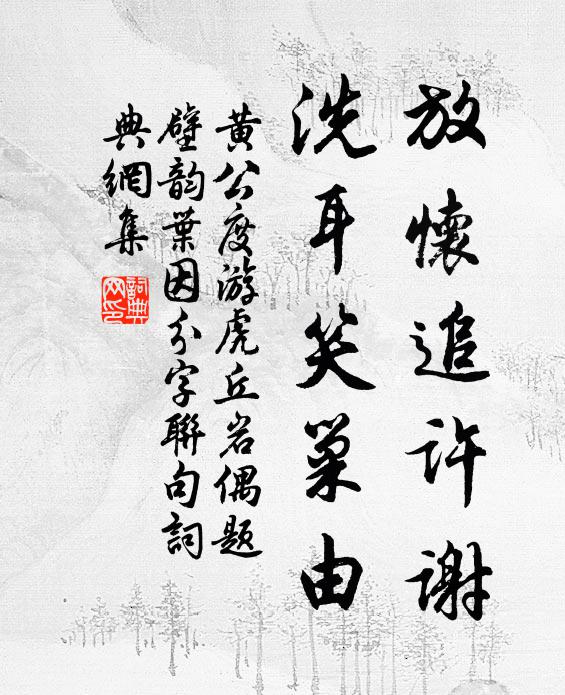 放懷追許謝
洗耳笑巢由
黃公度游虎丘岩偶题
壁韵葉因分字聯句詞
典網集
詞典
网印